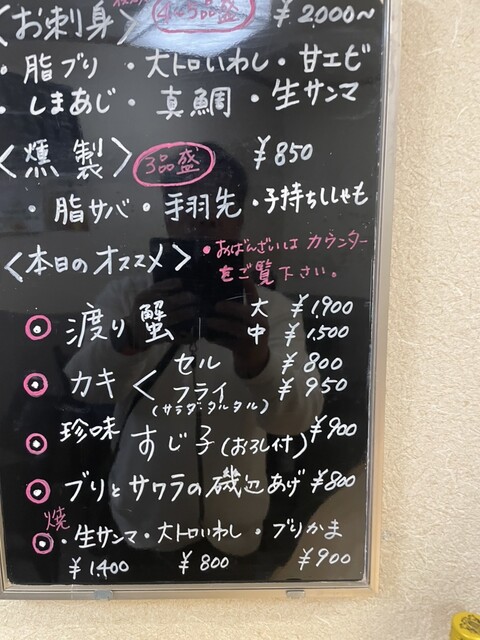 〈お刺身〉 4~5品盛 ¥2,000〜
・脂ブリ ・大トロいわし ・甘エビ
・しまあじ ・真鯛 ・生サンマ
〈燻製〉 3品盛 ¥850
・脂サバ ・手羽先 ・子持ちししゃも
〈本日のオススメ〉 ・おばんざいは カウンター
をご覧下さい。
渡り蟹 大 ¥1,900
中 ¥1,500
カキ〈 セル ¥800
フライ ¥950
(サラダ・タルタル)
珍味 すじ子(おろし付) ¥900
ブリとサワラの磯辺あげ ¥800
焼 ・生サンマ ・大トロいわし ・ブリかま
¥1,400 ¥800 ¥900